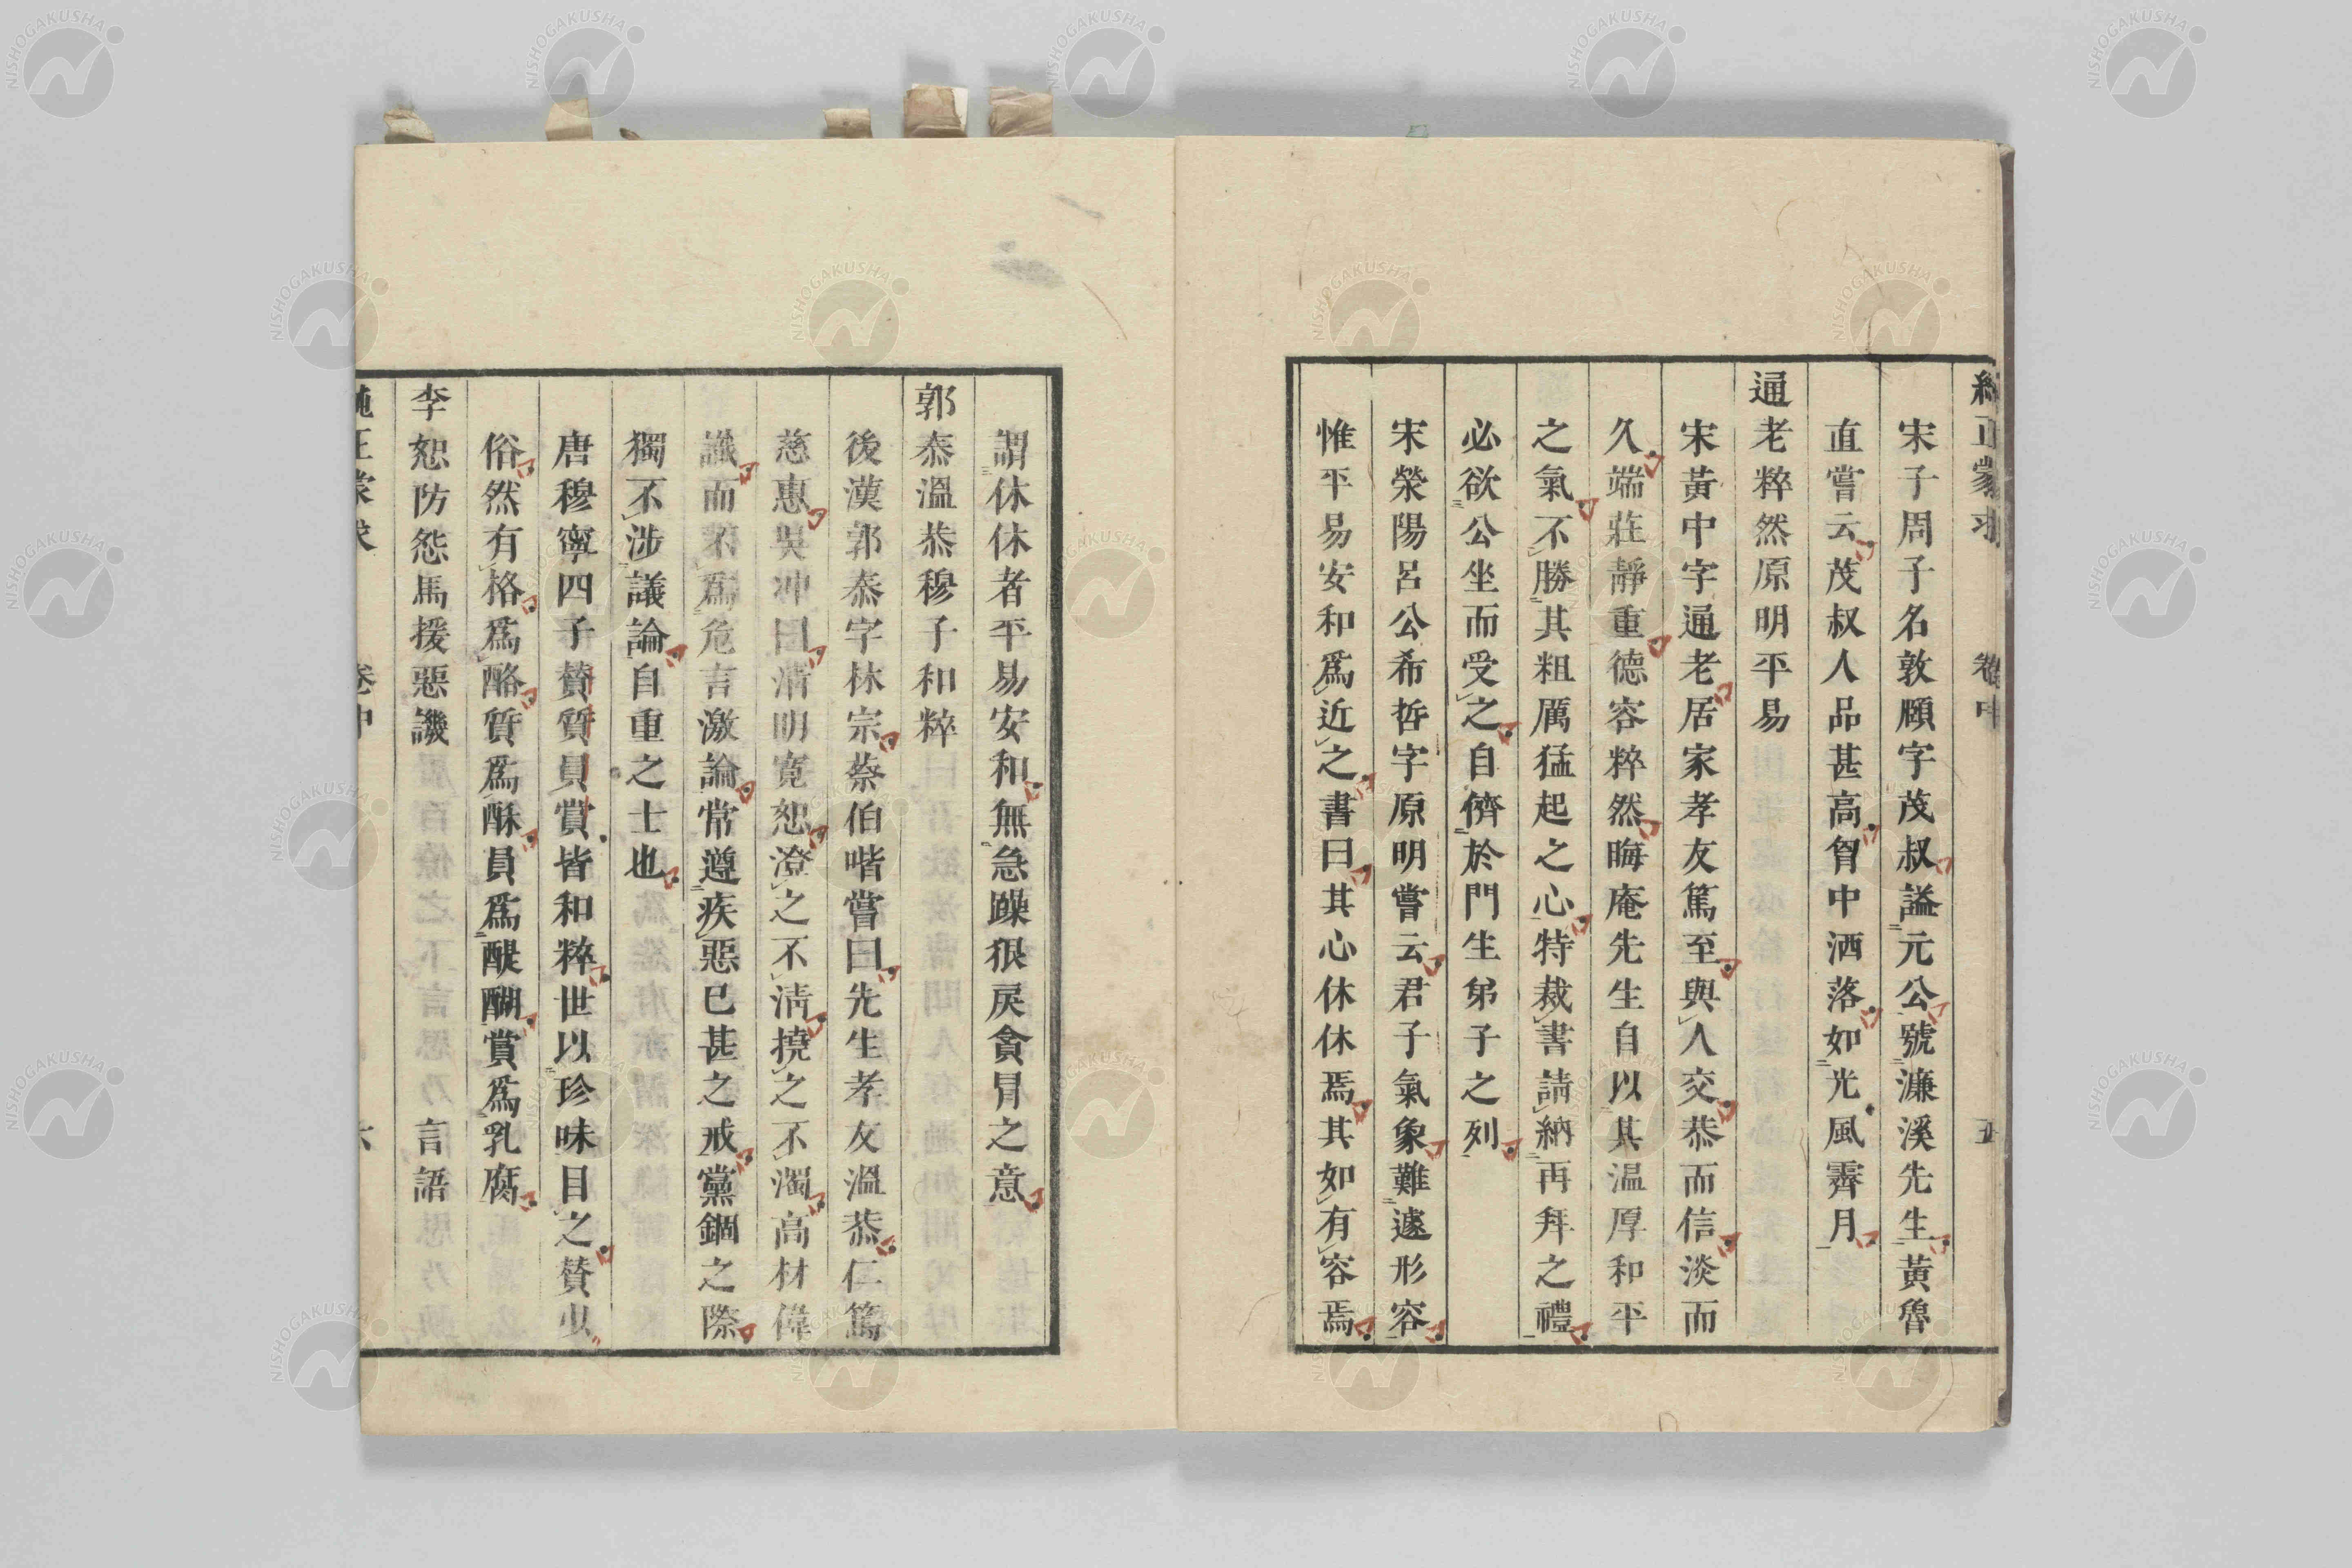 純正蒙求 卷中 五
宋子周子名敦頥字茂叔謚元公號濂溪先生黃魯
直嘗云茂叔人品甚高胷中洒落如光風霽月
通老粹然原明平易
宋黃中字通老居家孝友篤至與人交恭而信淡而
久端莊靜重德容粹然晦庵先生自以其温厚和平
之氣不勝其粗厲猛起之心特裁書請納再拜之禮
必欲公坐而受之自儕於門生弟子之列
宋滎陽呂公希哲字原明嘗云君子氣象難遽形容
惟平易安和爲近之書曰其心休休焉其如有容焉
謂休休者平易安和無急躁狠戾貪冒之意
郭泰溫恭穆子和粹
後漢郭泰字林宗蔡伯喈嘗曰先生孝友溫恭仁篤
慈惠吳冲曰清明寬恕澄之不淸撓之不濁高材偉
識而不爲危言激論常遵疾惡已甚之戒黨錮之際
獨不涉議論自重之士也
唐穆寧四子贊質員賞皆和粹世以珍味目之贊少
俗然有格爲酪質爲酥員爲醍醐賞爲乳腐
李恕防怨馬援惡譏 言語
純正蒙求 卷中 六
NISHOGAKUSHA